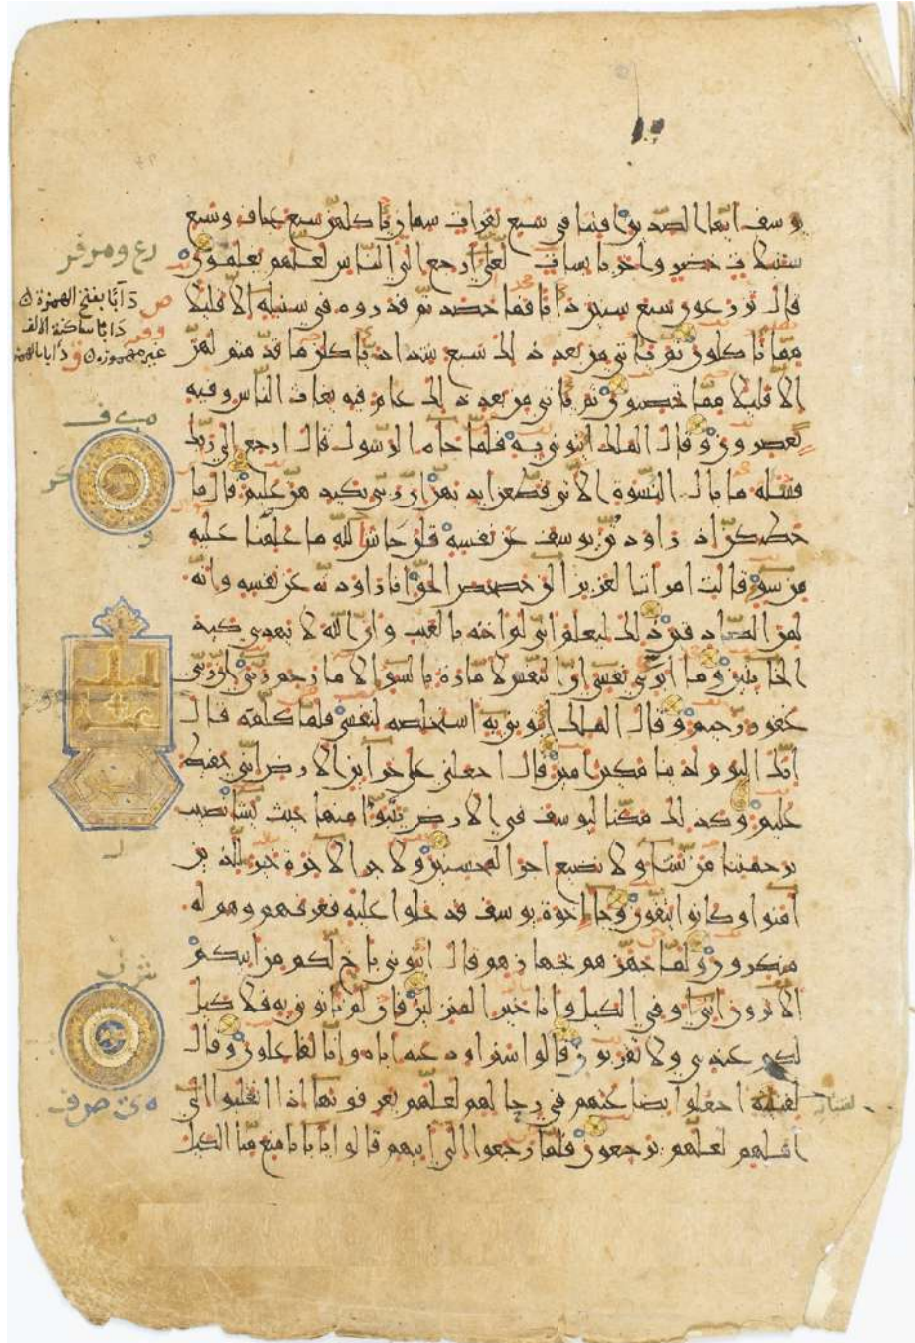 يوسف ايها الصديق افتنا في سبع بقرات سمان ياكلهن سبع عجاف وسبع
سنبلات خضر واخر يابسات لعلي ارجع الى الناس لعلهم يعلمون
قال تزرعون سبع سنين دابا فما حصدتم فذروه في سنبله الا قليلا
مما تاكلون ثم ياتي من بعد ذلك سبع شداد ياكلن ما قدمتم لهن
الا قليلا مما تحصنون ثم ياتي من بعد ذلك عام فيه يغاث الناس وفيه
يعصرون وقال الملك ائتوني به فلما جاه الرسول قال ارجع الى ربك
فسئله ما بال النسوة الاتي قطعن ايديهن ان ربي بكيدهن عليم قال ما
خطبكن اذ راودتن يوسف عن نفسه قلن حاش لله ما علمنا عليه
من سوء قالت امرات العزيز الن حصحص الحق انا راودته عن نفسه وانه
لمن الصادقين ذلك ليعلم اني لم اخنه بالغيب وان الله لا يهدي كيد
الخاينين وما ابري نفسي ان النفس لامارة بالسو الا ما رحم ربي ان ربي
غفور رحيم وقال الملك ائتوني به استخلصه لنفسي فلما كلمه قال
انك اليوم لدينا مكين امين قال اجعلني على خزاين الارض اني حفيظ
عليم وكذلك مكنا ليوسف في الارض يتبوا منها حيث يشا نصيب
برحمتنا من نشا ولا نضيع اجر المحسنين ولاجر الاخرة خير للذين
امنوا وكانوا يتقون وجا اخوة يوسف فدخلوا عليه فعرفهم وهم له
منكرون ولما جهزهم بجهازهم قال ائتوني باخ لكم من ابيكم
الا ترون اني اوفي الكيل وانا خير المنزلين فان لم تاتوني به فلا كيل
لكم عندي ولا تقربون قالوا سنراود عنه اباه وانا لفاعلون وقال
لفتيته اجعلوا بضاعتهم في رحالهم لعلهم يعرفونها اذا انقلبوا الى
اهلهم لعلهم يرجعون فلما رجعوا الى ابيهم قالوا ياابانا منع منا الكيل
ص دَأَبًا بفتح الهمزة
دَابًا ساكنة الالف
غير مهموزة